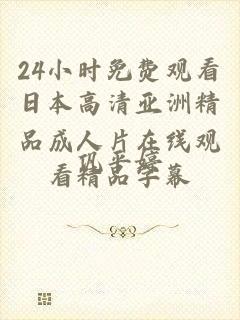 24小时免费观看
日本高清亚洲精
品成人片在线观
看精品字幕